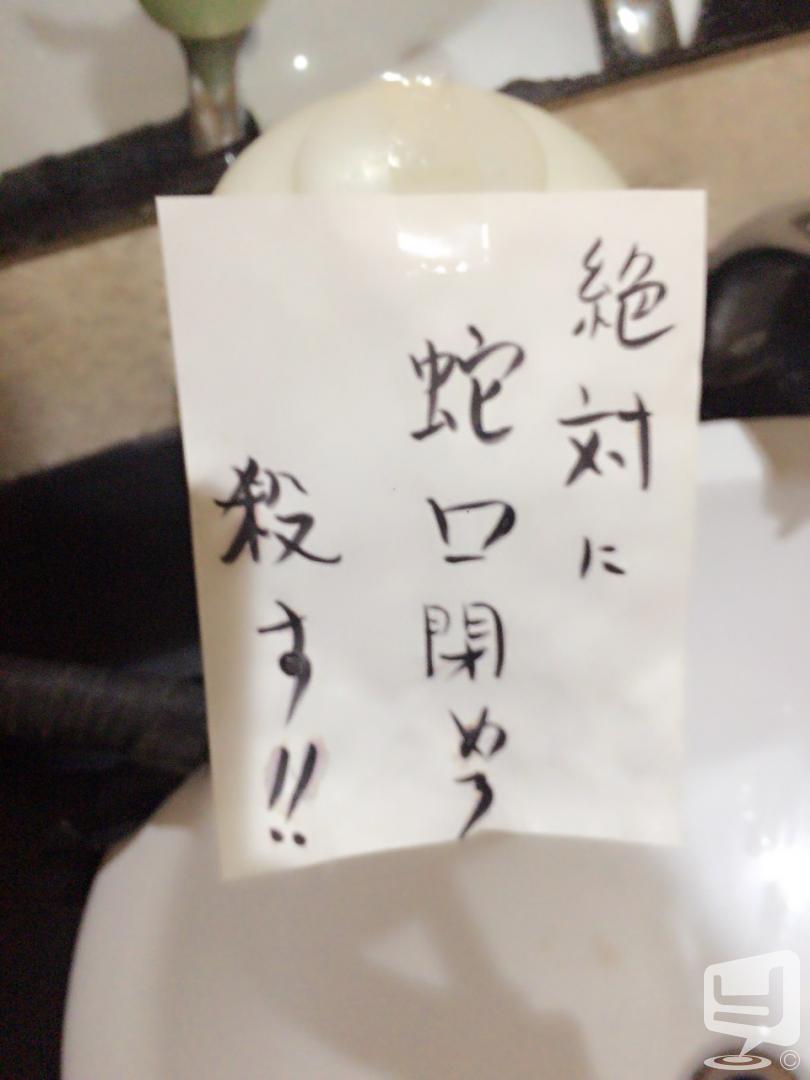 絶対に
蛇口閉めろ
殺す!!